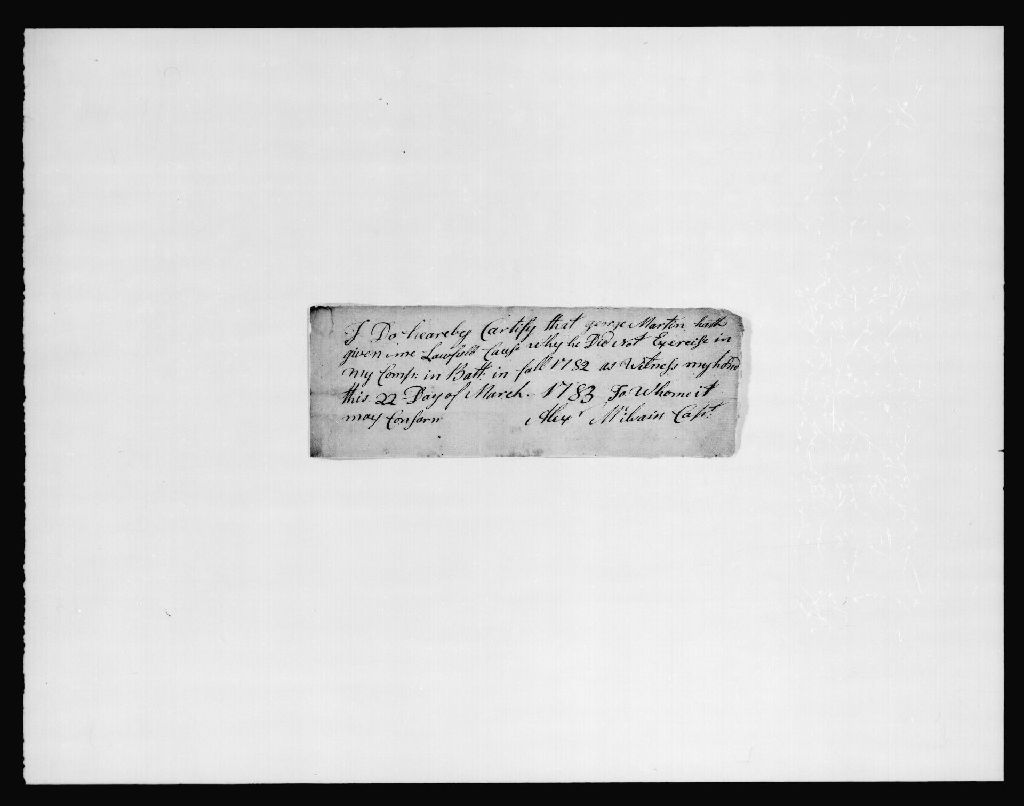 I Do heareby Cartify that george Martin hath
given me Lawfold Cause why he Did Not Exercise in
my Comp: in Batt: in fall 1782 as Witness my hand
this 22 Day of March 1783 To Whome it
may Consarn Alexr Mclvain Capt: